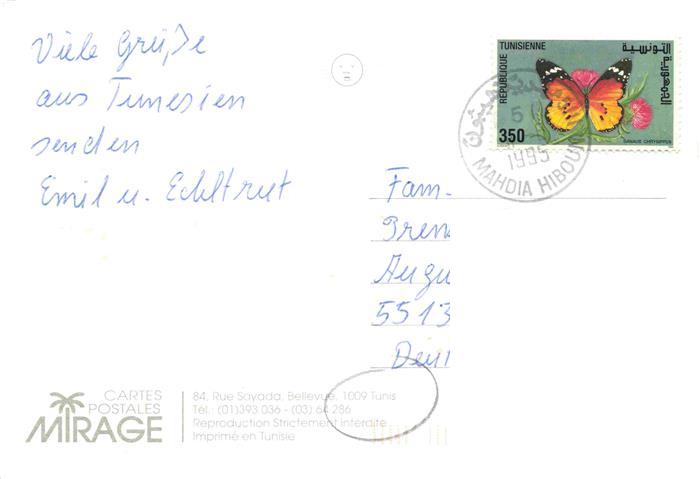 Viele Grüße
aus Tunesien
senden
Emil u. Edeltrut
REPUBLIQUE TUNISIENNE
الجمهورية التونسية
350
DANAUS CHRYSIPPUS
5
1995
MAHDIA HIBOUN
Fam.
Augu
5513
CARTES
POSTALES
MIRAGE
84, Rue Sayada, Bellevue, 1009 Tunis
Tél.: (01)393 036 - (03) 64 286
Reproduction Strictement Interdite
Imprimé en Tunisie